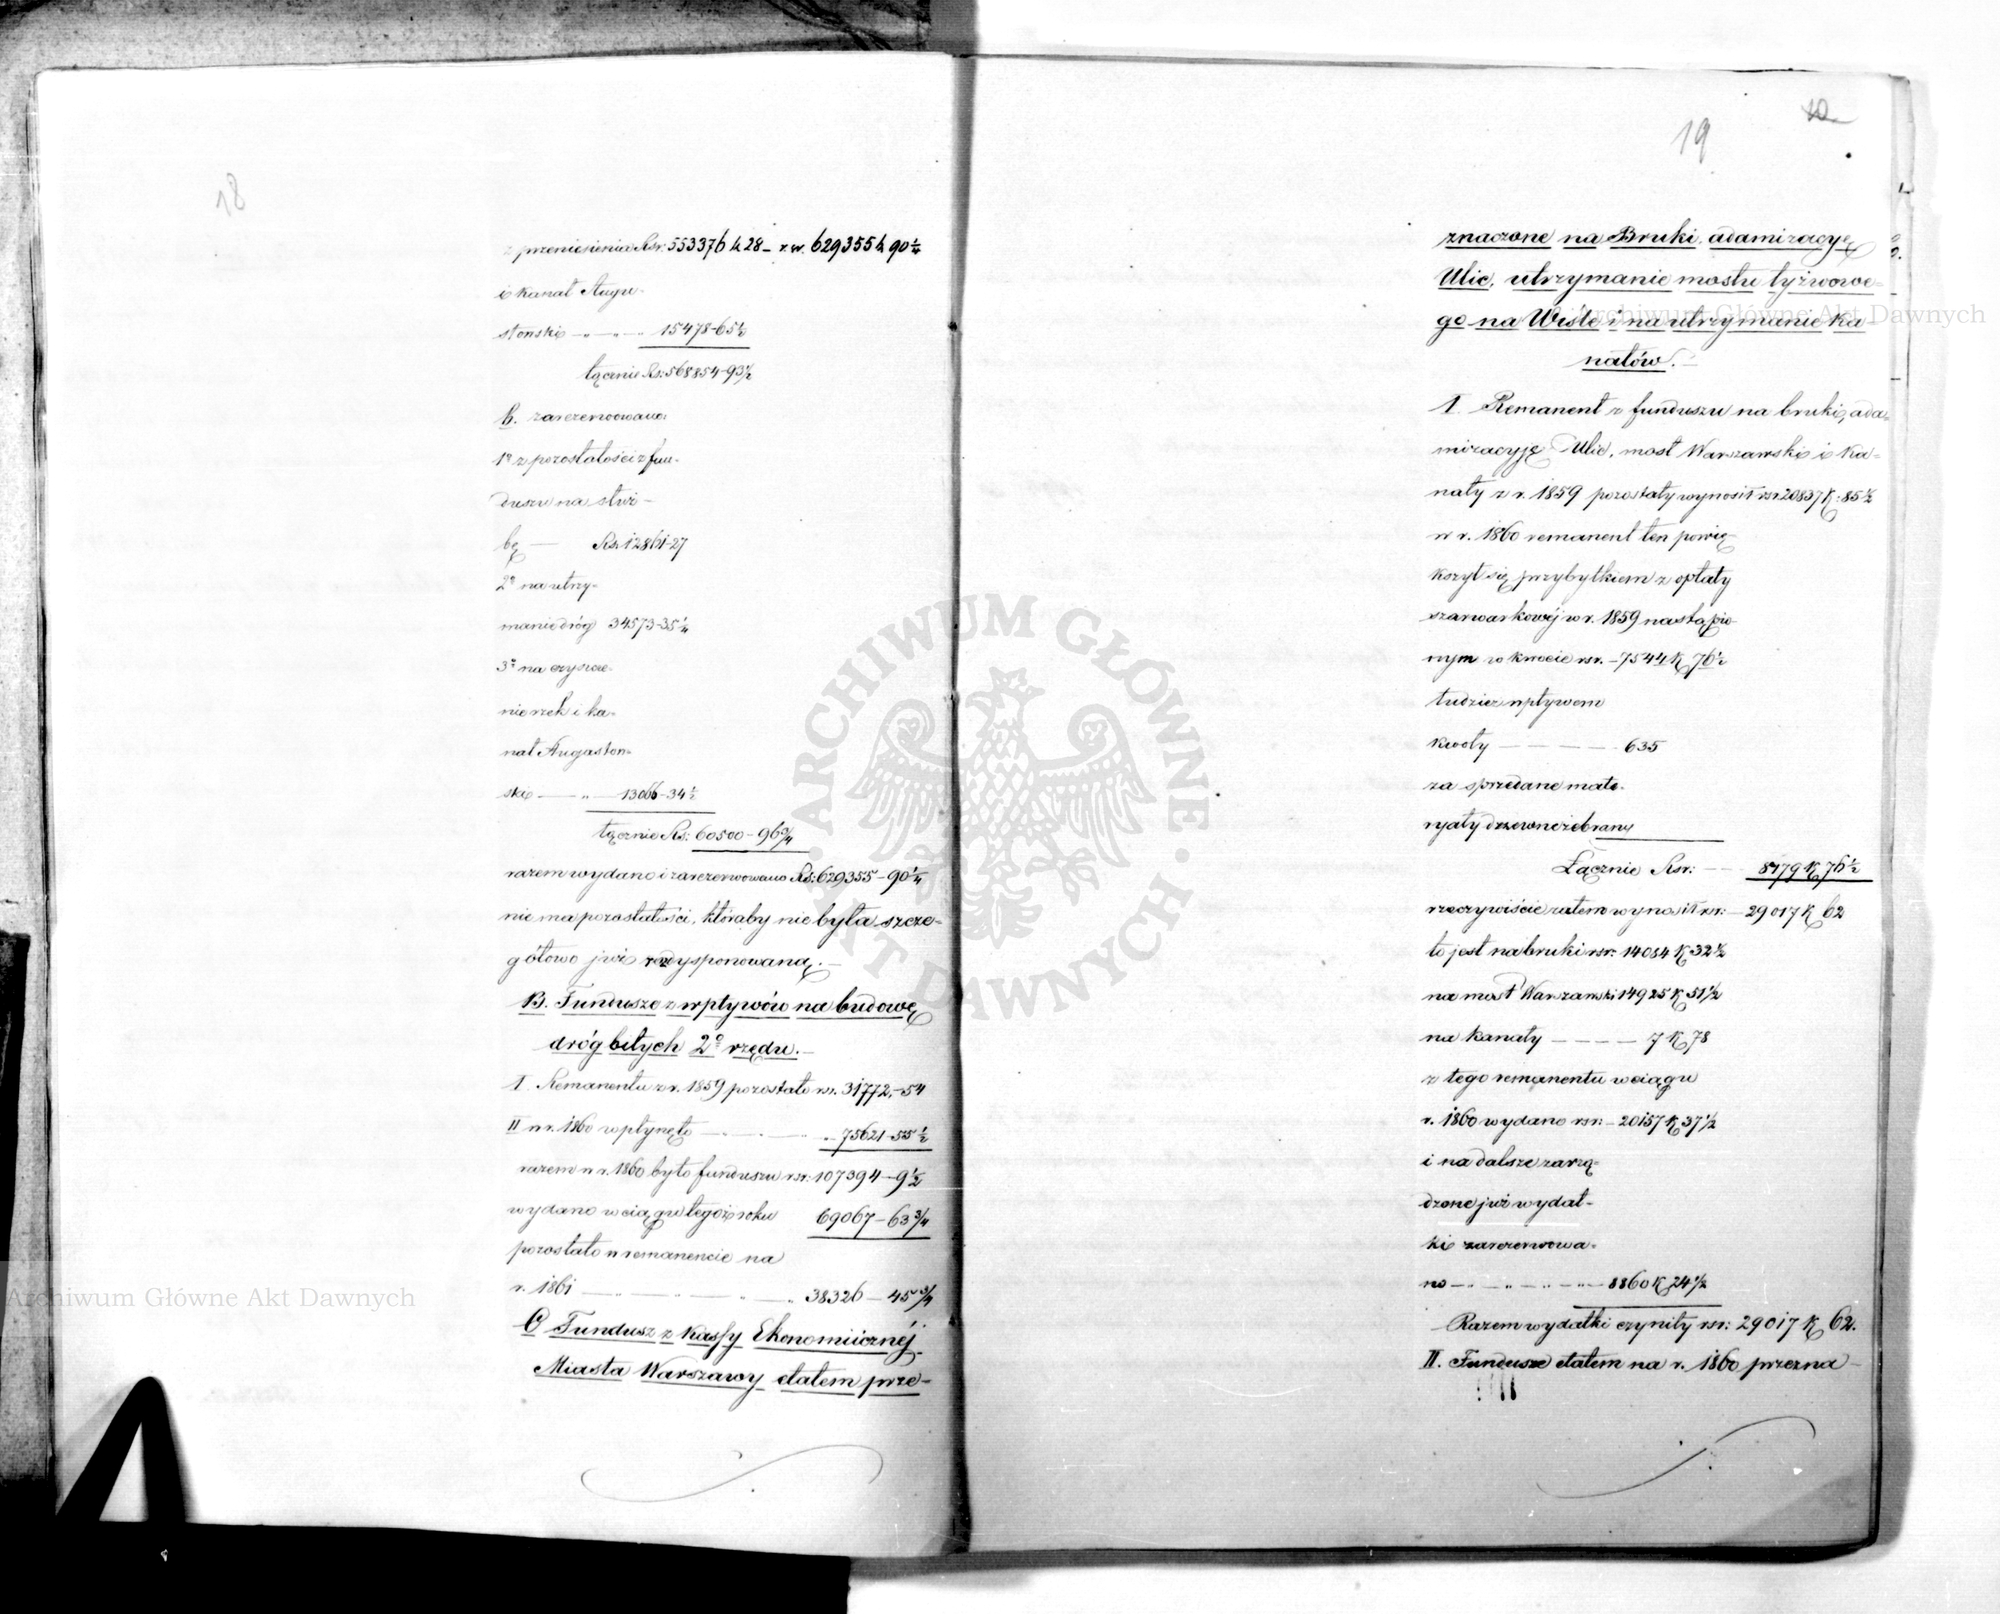 18
z przeniesienia Rsr: 553376 k 28 – r.sr. 629355 k 90 1/4
i kanał Augu-
stowski – „ – „ – 15478-65 1/2
łącznie Rs: 568854-93 1/2
b. zarezerwowano:
1º z pozostałości z fun-
duszu na służ-
bę — Rs. 12861-27
2º na utrzy-
manie dróg 34573-35 1/4
3º na czyszcze-
nie rzek i ka-
nał Augustow-
ski — „ — 13066-34 1/2
łącznie Rs: 60500-96 3/4
razem wydano i zarezerwowano Rs: 629355-90 1/4
nie ma pozostałości, któraby nie była szcze-
gółowo już rozdysponowaną. –
B. Fundusze z wpływów na budowę
dróg bitych 2º rzędu. –
I. Remanentu z r. 1859 pozostało rsr. 31772,-54
II w r. 1860 wpłynęło — — 75621-55 1/2
razem w r. 1860 było funduszu rsr: 107394-9 1/2
wydano w ciągu tegoż roku 69067-63 3/4
pozostało w remanencie na
r. 1861 — — — „ 38326-45 3/4
C Fundusz z Kassy Ekonomicznéj
Miasta Warszawy etatem prze-
10
19
znaczone na Bruki, adamizacyę
Ulic, utrzymanie mostu łyżwowe-
go na Wiśle i na utrzymanie ka-
nałów. –
I. Remanent z funduszu na bruki, ada-
mizacyję Ulic, most Warszawski i Ka-
nały z r. 1859 pozostały wynosił rsr. 20837 K: 85 1/2
w r. 1860 remanent ten powię-
kszył się przybytkiem z opłaty
szarwarkowéj w r. 1859 nastąpio-
nym w kwocie rsr. – 7544 K 76 1/2
tudzież wpływem
kwoty — — — — 635
za sprzedane mate-
ryały drzewne zebrany
Łącznie Rsr: — 8179 K 76 1/2
rzeczywiście zatem wynosił rsr: – 29017 K 62
to jest na bruki rsr: 14084 K 32 1/2
na most Warszawski 14925 K 51 1/2
na kanały — — — — 7 K 78
z tego remanentu w ciągu
r. 1860 wydano rsr: – 20157 K 37 1/2
i na dalsze zarzą-
dzone już wydat-
ki zarezerwowa-
no — „ — „ — „ — 8860 K 24 1/2
Razem wydatki czyniły rsr: 29017 K 62.
II. Fundusze etatem na r. 1860 przezna-
ARCHIWUM GŁÓWNE AKT DAWNYCH
Archiwum Główne Akt Dawnych
Archiwum Główne Akt Dawnych